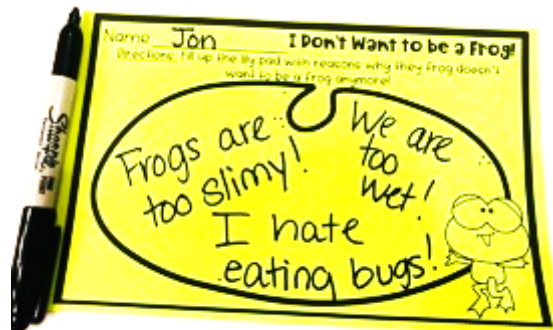 Name Jon
I Don't Want to be a Frog!
Directions: Fill up the lily pad with reasons why they frog doesn't
want to be a frog anymore!
Frogs are
too slimy!
We are
too
wet!
I hate
eating bugs!
Sharpie